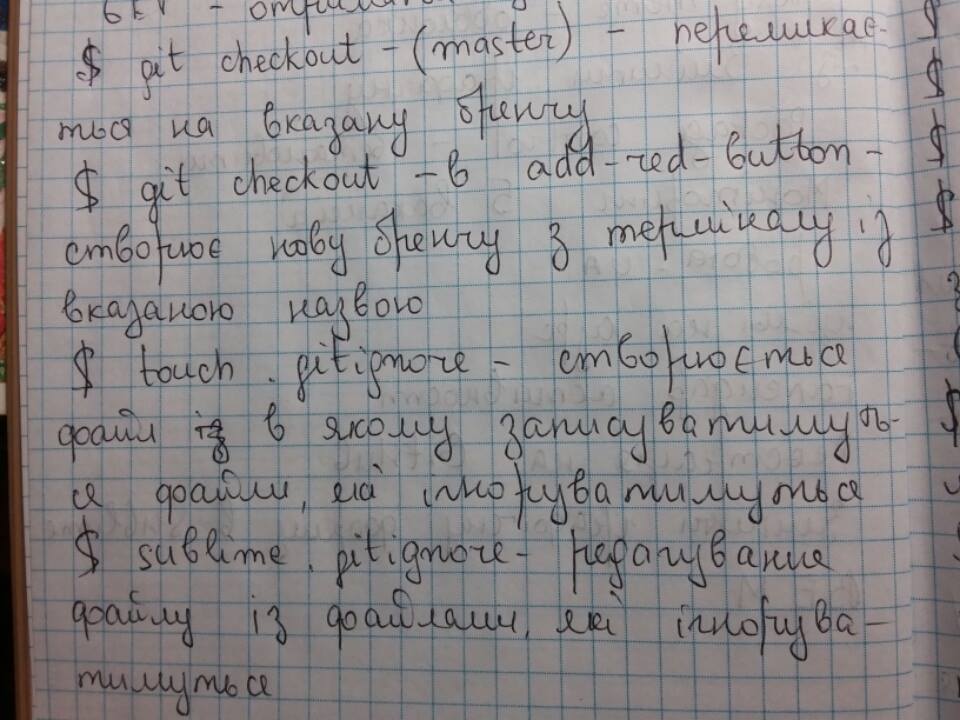 $ git checkout - (master) - перемикає-
ться на вказану бренчу
$ git checkout -b add-red-button -
створює нову бренчу з терміналу із
вказаною назвою
$ touch .gitignore - створюється
файл із в якому записуватимуть-
ся файли, які ігноруватимуться
$ sublime .gitignore - редагування
файлу із файлами, які ігнорува-
тимуться